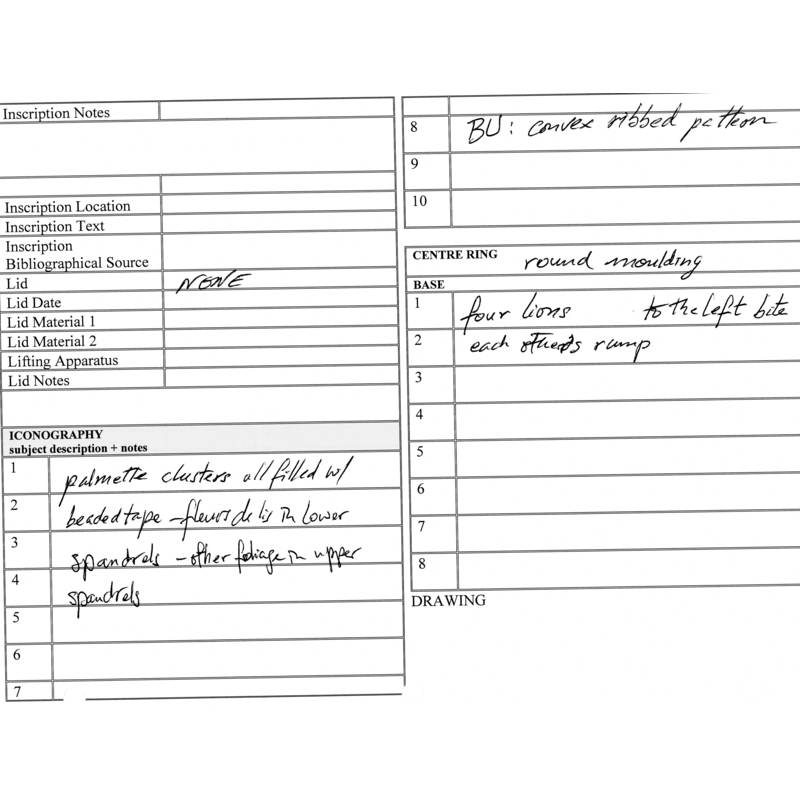 Inscription Notes
Inscription Location
Inscription Text
Inscription
Bibliographical Source
Lid NONE
Lid Date
Lid Material 1
Lid Material 2
Lifting Apparatus
Lid Notes
ICONOGRAPHY
subject description + notes
1 palmette clusters all filled w/
2 beaded tape - fleurs de lis in lower
3 spandrels - other foliage in upper
4 spandrels
5
6
7
8 BU: convex ribbed pattern
9
10
CENTRE RING round moulding
BASE
1 four lions to the left bite
2 each other's rump
3
4
5
6
7
8
DRAWING